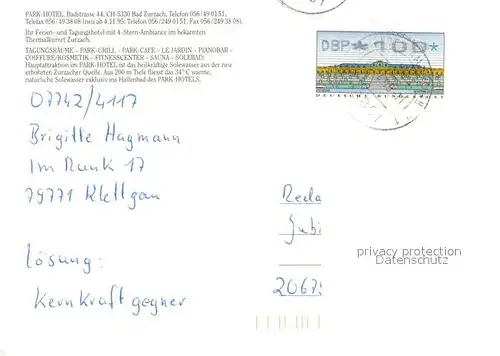 PARK-HOTEL, Badstrasse 44, CH-5330 Bad Zurzach, Telefon 056/49 01 51,
Telefax 056/49 38 08 (neu ab 4.11.95: Telefon 056/249 01 51, Fax 056/249 38 08).
Ihr Ferien- und Tagungshotel mit 4-Stern-Ambiance im bekannten
Thermalkurort Zurzach.
TAGUNGSRÄUME - PARK-GRILL - PARK-CAFE - LE JARDIN - PIANOBAR -
COIFFURE/KOSMETIK - FITNESSCENTER - SAUNA - SOLEBAD:
Hauptattraktion im PARK-HOTEL ist das heilkräftige Solewasser aus der neu
erbohrten Zurzacher Quelle. Aus 200 m Tiefe fliesst das 34° C warme,
natürliche Solewasser exklusiv ins Hallenbad des PARK-HOTELS.
DBP *100*
DEUTSCHE BUNDESPOST
07742/4117
Brigitte Hagmann
Im Rank 17
79771 Klettgau
Reda
Jubi
2067
Lösung:
Kernkraftgegner
privacy protection
Datenschutz